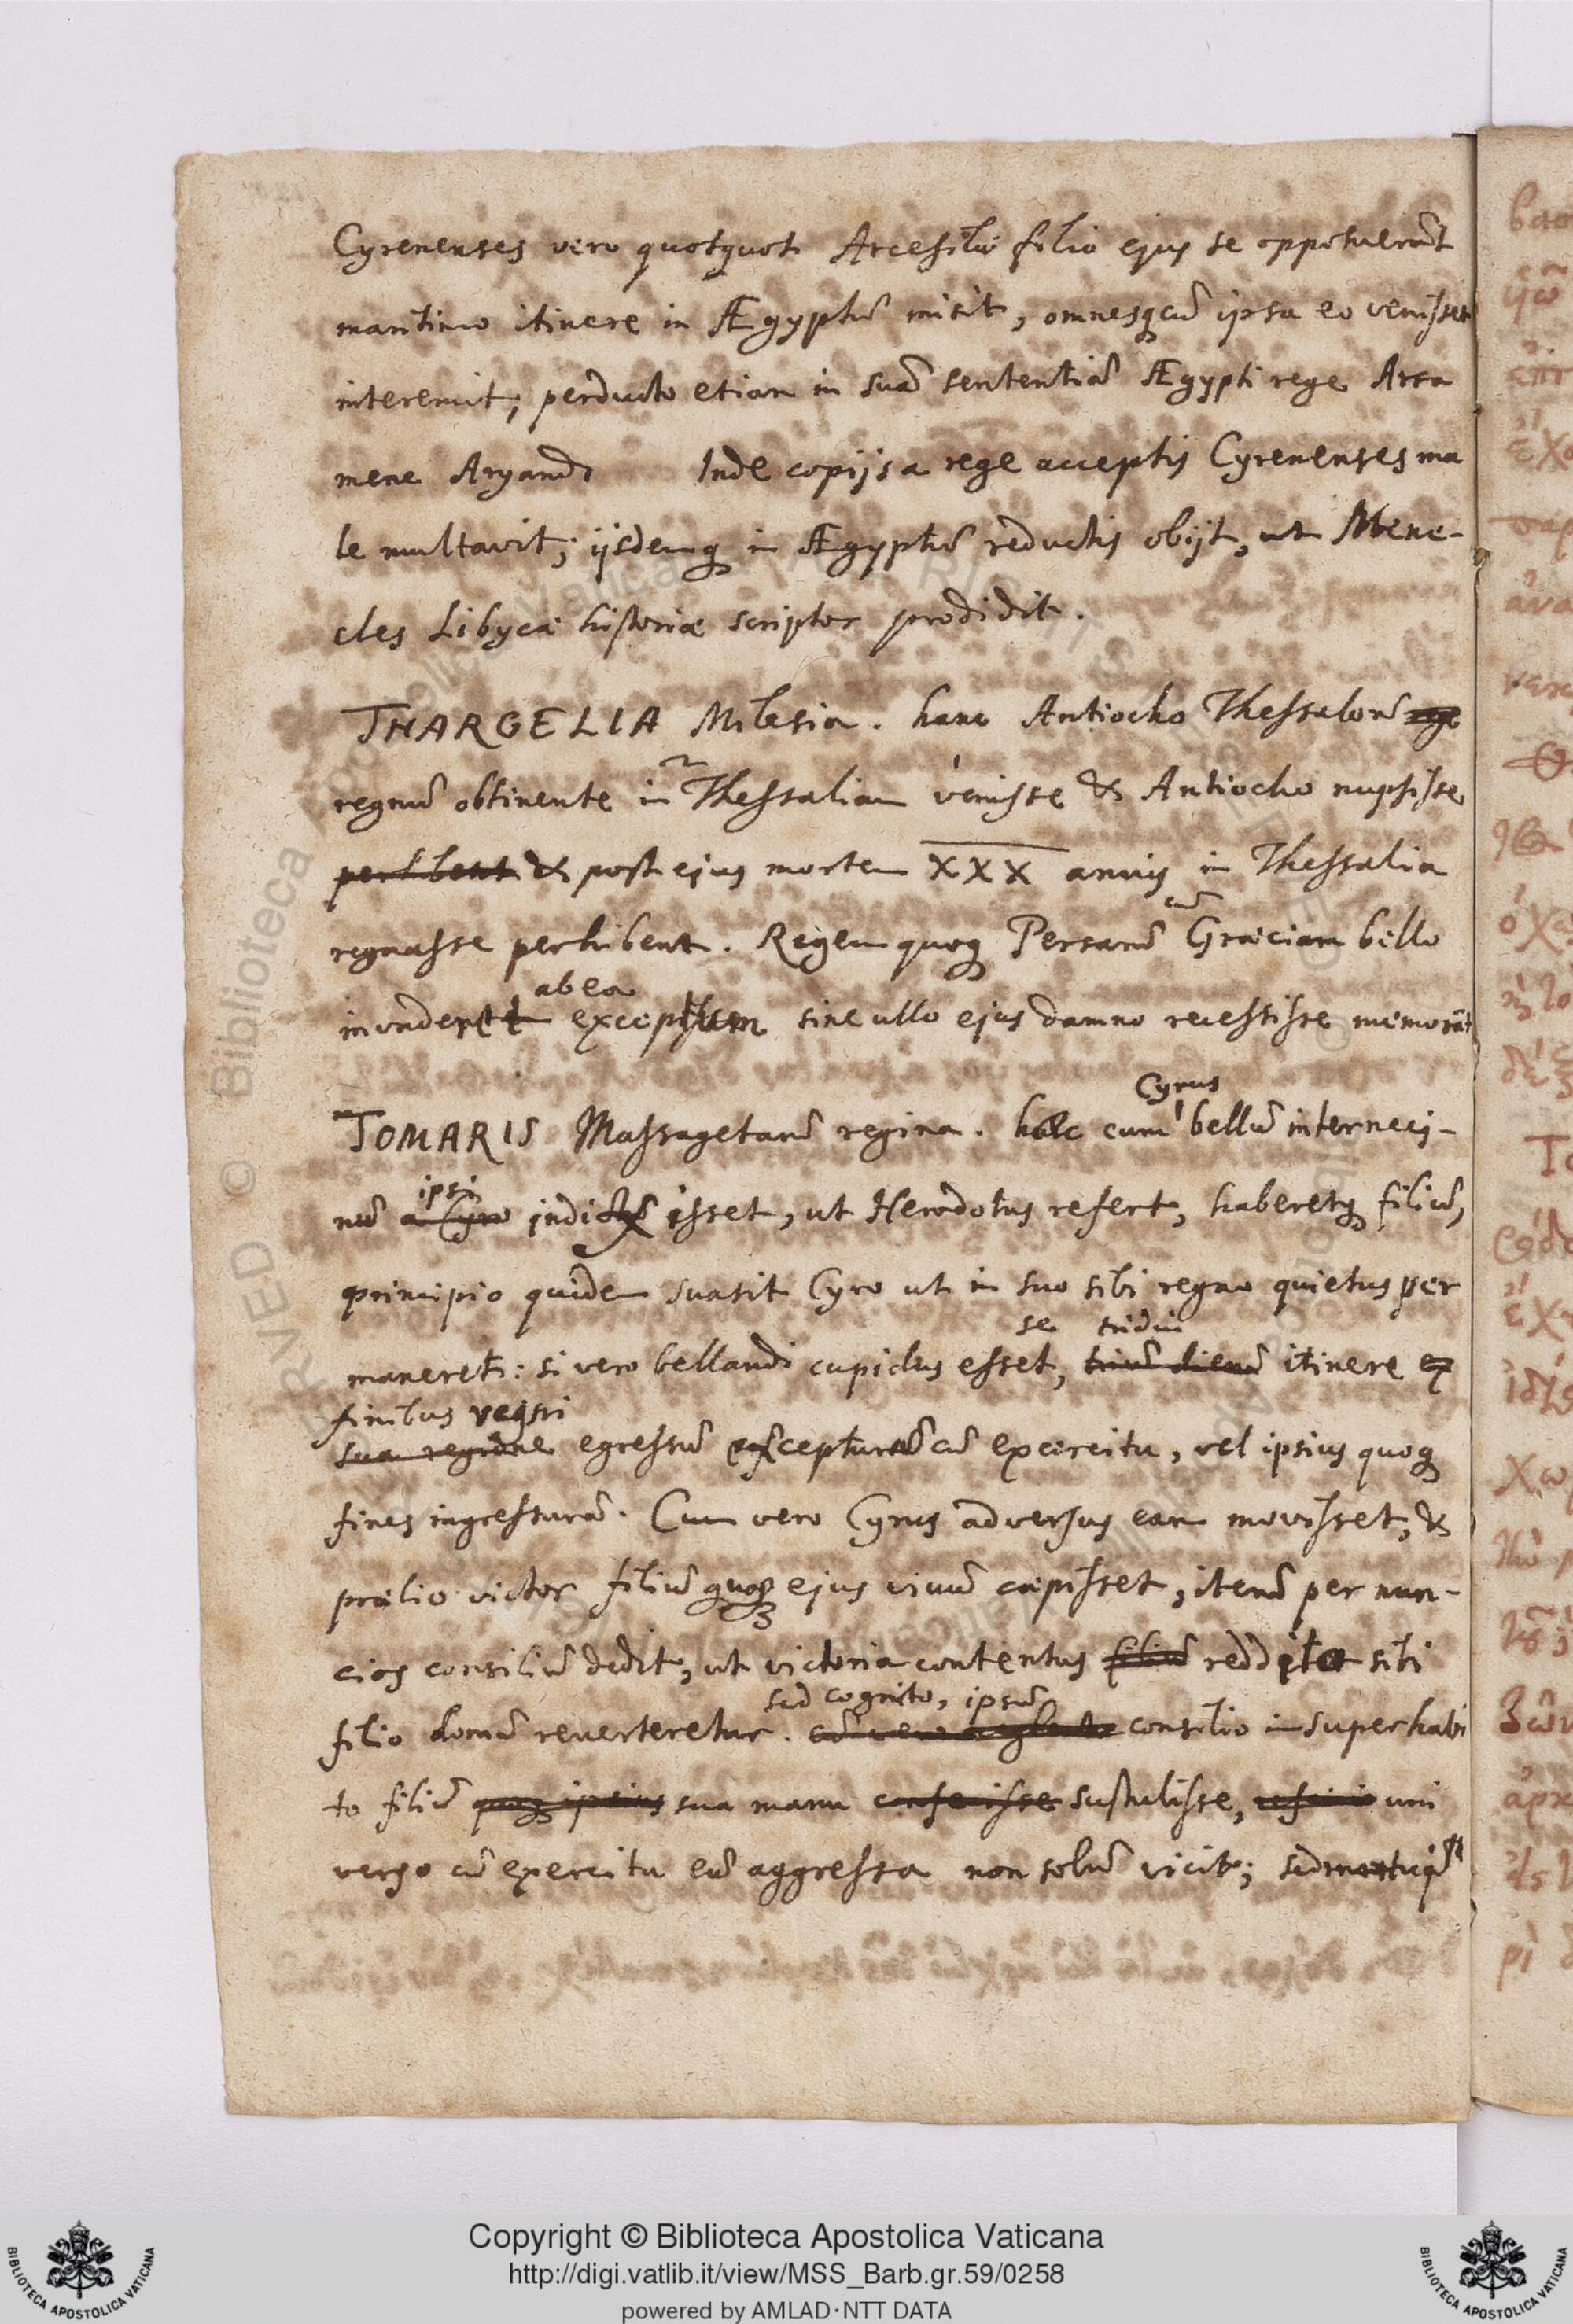 Cyrenenses vero quotquot Arcesilao filio ejus se opposuerāt
maritimo itinere in Ægyptū misit, omnesq; cū ipsa eo venissēt
interemit; perducto etiam in suā sententiā Ægypti rege Arsa
mene Aryande Inde copijs a rege acceptis Cyrenenses ma
le multavit; ijsdemq; in Ægyptū reductis obijt, ut Mene-
cles Libycæ historiæ scriptor prodidit.
THARGELIA Milesia. hanc Antiocho Thessalorū
regnū obtinente in Thessaliam venisse & Antiocho nupsisse
perhibent & post ejus mortem XXX annis in Thessalia
cū
regnasse perhibent. Regem quoq; Persarū Græciam bello
ab ea
sine ullo ejus damno recessisse memorāt
Cyrus
TOMARIS Massagetarū regina. hæc cum bellū interneci-
ipsi
nū a Cyro indixisset, ut Herodotus refert, haberetq; filiū,
principio quidem suasit Cyro ut in suo sibi regno quietus per
se tridui
maneret: si vero bellandi cupidus esset, triū dierū itinere ex
finibus regni
sua regione egressū excepturā cū exercitu, vel ipsius quoq;
fines ingressurā. Cum vero Cyrus adversus eam movisset, &
prælio victor filiū quoq; ejus vivū cepisset, iterū per nun-
cios consiliū dedit, ut victoria contentus filiū reddito sibi
sed cognito, ipsum
filio domū reverteretur. consilio insuper habi
to filiū quoq; ipsius sua manu sustulisse, uni
verso cū exercitu eū aggressa non solū vicit; sed
Copyright © Biblioteca Apostolica Vaticana
http://digi.vatlib.it/view/MSS_Barb.gr.59/0258
powered by AMLAD·NTT DATA
BIBLIOTECA APOSTOLICA VATICANA
BIBLIOTECA APOSTOLICA VATICANA